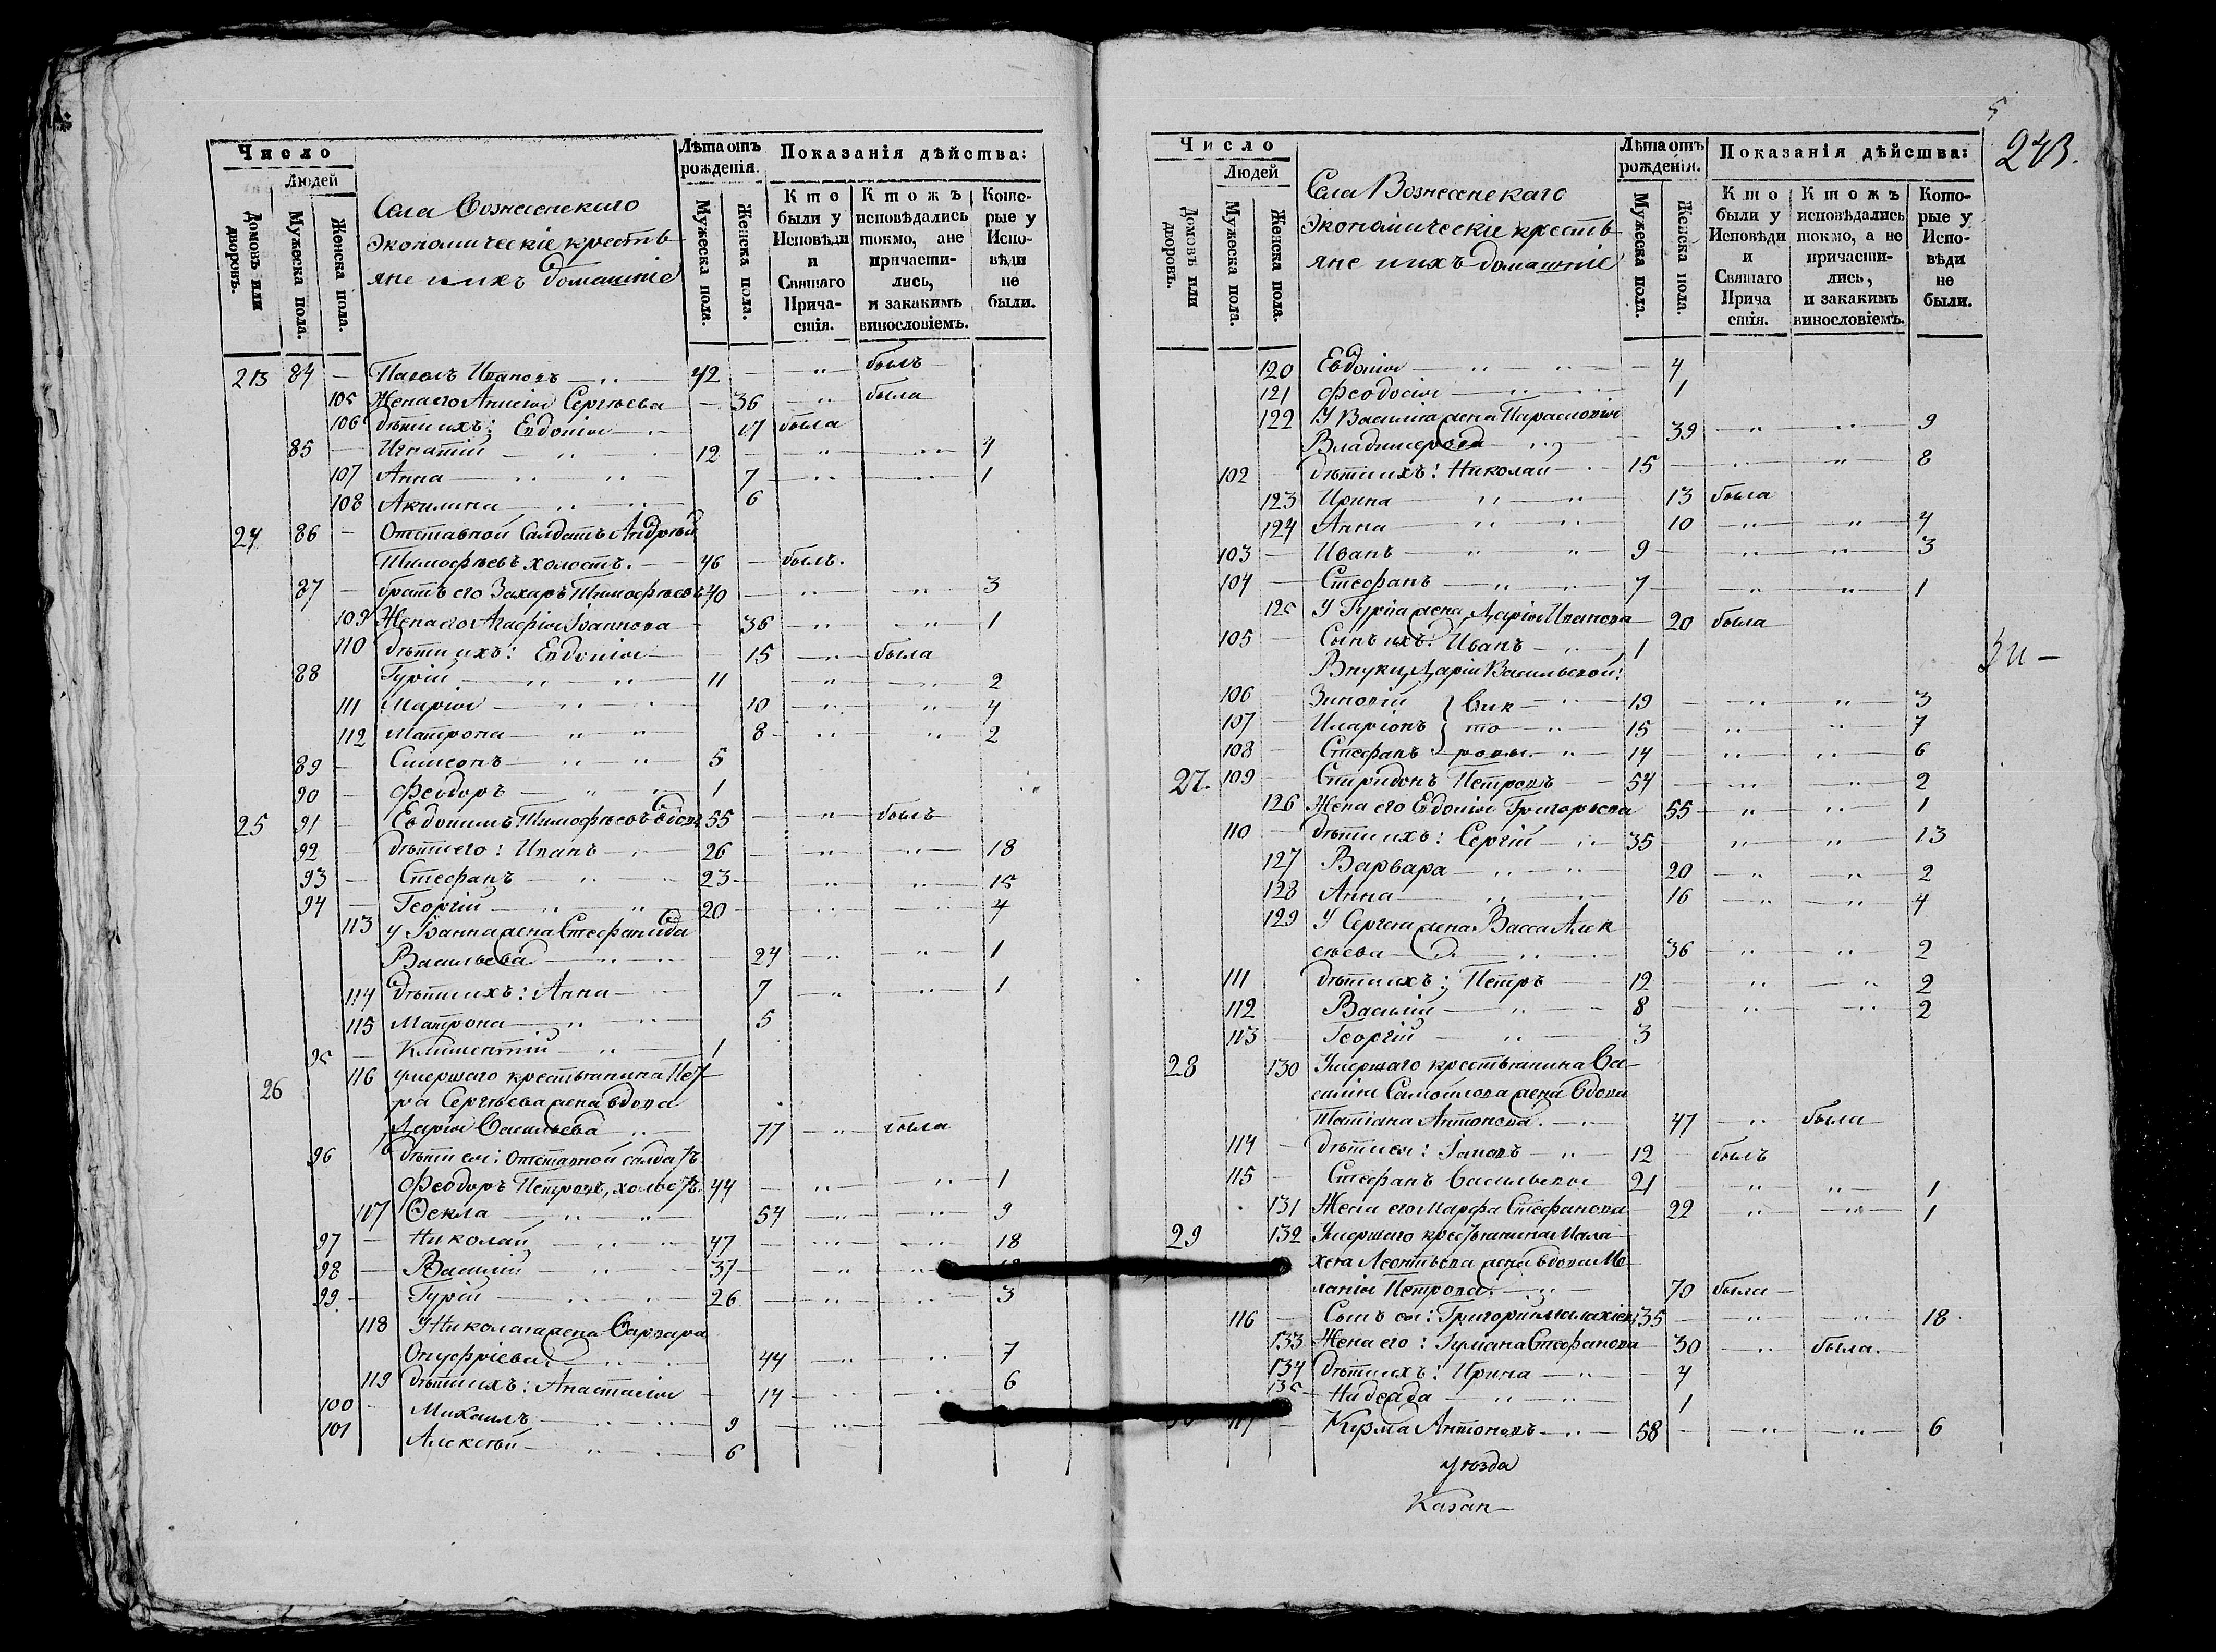 Число
Людей
Домовъ или дворовъ.
Мужеска пола.
Женска пола.
Села Вознесенскаго
экономическіе кресть-
яне и ихъ домашніе
Лѣта отъ рожденія.
Мужеска пола.
Женска пола.
Показанія дѣйства:
Кто были у Исповѣди и Святаго Причастія.
Ктожъ исповѣдались токмо, а не причастились, и закакимъ винословіемъ.
Которые у Исповѣди не были.
23 84 — Павелъ Ивановъ — 42 — былъ
105 Жена его Анисія Сергѣева — 36 — была
106 дѣти ихъ: Евдокія — 17 была
85 — Игнатій — 12 — 4
107 Анна — 7 — 1
108 Акилина — 6
24 86 — Отставной Салдатъ Андрей
Тимофѣевъ холостъ. — 46 — былъ.
87 — братъ его Захаръ Тимофѣевъ 40 — 3
109 Жена его Агафія Іваннова — 36 — 1
110 дѣти ихъ: Евдокія — 15 — была
88 Гурій — 11 — 2
111 Марія — 10 — 4
112 Матрона — 8 — 2
89 — Симеонъ — 5
90 — Феодоръ — 1
25 91 — Евдокимъ Тимофѣевъ вдовъ 55 — былъ
92 — дѣти его: Иванъ — 26 — 18
93 — Стефанъ — 23 — 15
94 — Георгій — 20 — 4
113 у Іванна жена Стефанида
Васильева — 24 — 1
114 дѣти ихъ: Анна — 7 — 1
115 Матрона — 5
95 — Климентій — 1
26 116 умершаго крестьянина Пет-
ра Сергѣева жена вдова
Дарія Васильева — 77 — была
96 дѣти ея: Отставной салдатъ
Феодоръ Петровъ, холостъ. 44 — 1
117 Ѳекла — 54 — 9
97 — Николай — 47 — 18
98 — Василій — 37 —
99 — Гурій — 26 — 3
118 У Николая жена Варвара
Онуфріева — 44 — 7
119 дѣти ихъ: Анастасія — 14 — 6
100 — Михаилъ — 9 —
101 Алексѣй — 6
243.
Число
Людей
Домовъ или дворовъ.
Мужеска пола.
Женска пола.
Села Вознесенскаго
экономическіе кресть-
яне и ихъ домашніе
Лѣта отъ рожденія.
Мужеска пола.
Женска пола.
Показанія дѣйства:
Кто были у Исповѣди и Святаго Причастія.
Ктожъ исповѣдались токмо, а не причастились, и закакимъ винословіемъ.
Которые у Исповѣди не были.
120 Евдокія — 4
121 Феодосія — 1
122 У Василія жена Парасковія
Владимерова — 39 — 9
102 — дѣти ихъ: Николай — 15 — 8
123 Ирина — 13 была
124 Анна — 10 — 4
103 — Иванъ — 9 — 3
104 — Стефанъ — 7 — 1
125 У Гурія жена Дарія Иванова — 20 была
105 — Сынъ ихъ: Иванъ — 1
Внуки Даріи Васильевой:
106 — Зиновій } Вик — 19 — 3
107 — Иларіонъ } то — 15 — 7
108 — Стефанъ } ровы. 14 — 6
27. 109 — Спиридонъ Петровъ — 54 — 2
126 Жена его Евдокія Григорьева 55 — 1
110 — дѣти ихъ: Сергій — 35 — 13
127 Варвара — 20 — 2
128 Анна — 16 — 4
129 У Сергея жена Васса Алек
сѣева — 36 — 2
111 дѣти ихъ: Петръ — 12 — 2
112 Василій — 8 — 2
113 — Георгій — 3
28 130 Умершаго крестьянина Ва-
силія Самойлова жена вдова
Татіана Антонова. — 47 — была
114 — дѣти ея: Іаковъ — 12 — былъ
115 — Стефанъ Васильевъ 21 — 1
131 Жена его Марфа Стефанова — 22 — 1
29 132 Умершаго крестьянина Мала-
хея Леонтьева жена вдова Ме-
ланія Петрова. — 70 была
116 — Сынъ ея: Григорій Малахіевъ 35 — 18
133 Жена его: Гуліана Стефанова — 30 — была.
134 дѣти ихъ: Ирина — 4
135 Надежда — 1
117 — Кузма Антоновъ — 58 — 6
уѣзда
Казан-